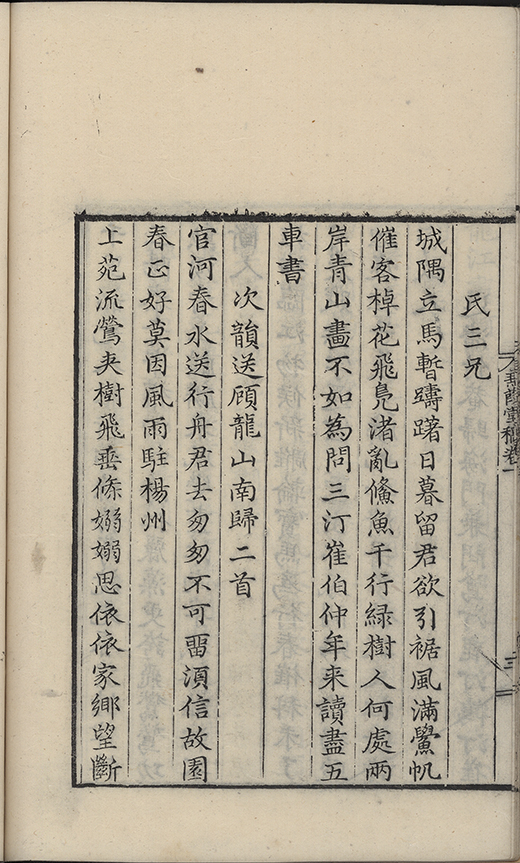 霞堂稿卷一
三
氏三兄
城隅立馬暫躊躇日暮留君欲引裾風滿鱟帆
催客棹花飛鳧渚亂鯈魚千行緑樹人何處兩
岸青山畫不如為問三汀崔伯仲年来讀盡五
車書
次韻送顧龍山南歸二首
官河春水送行舟君去匆匆不可畱須信故園
春正好莫因風雨駐楊州
上苑流鶯夹樹飛垂絛嫋嫋思依依家鄉望斷